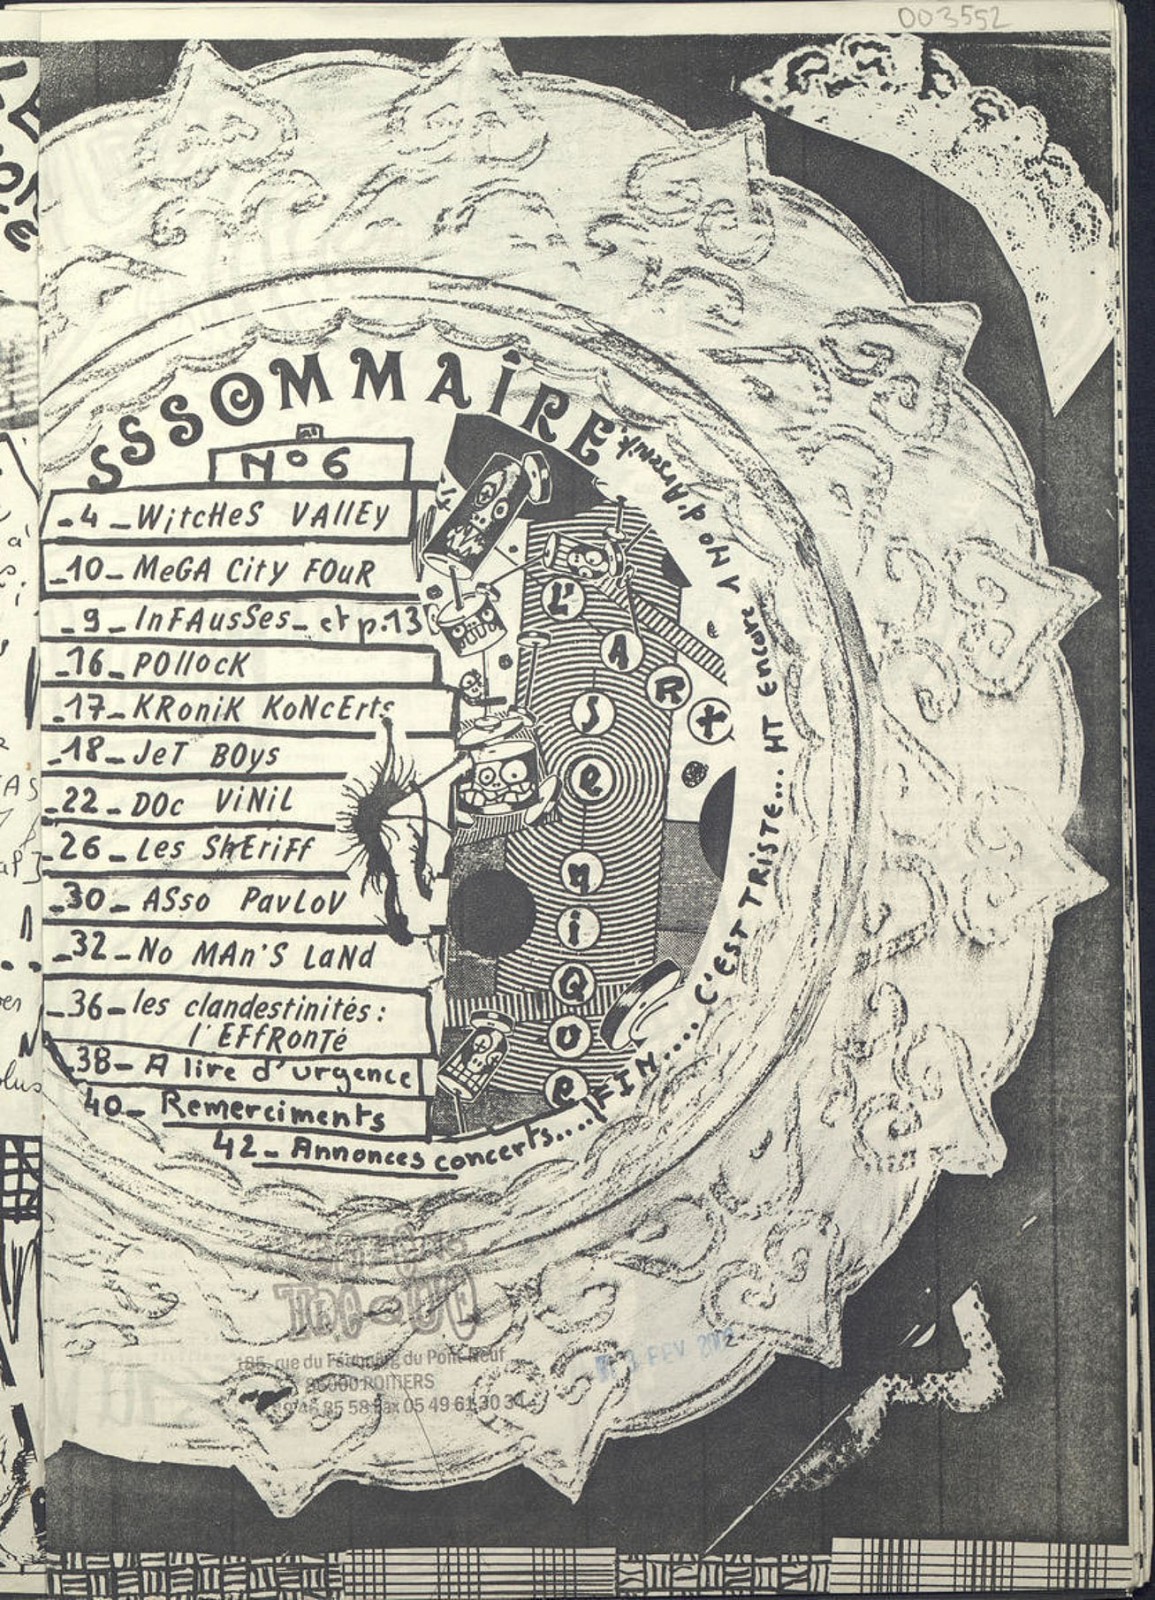 003552
SSSOMMAiRE
N°6
-4-WitcHeS VAllEy
-10-MeGA City FOuR
-9-InFAusSes-et p.13
-16-POllocK
-17-KRoniK KoNcErts
-18-JeT BOys
-22-DOc ViNiL
-26-Les ShEriFF
-30-ASso PavLoV
-32-No MAn'S LaNd
-36-les clandestinités:
l'EFfRonTé
38-A lire d'urgence
40-Remerciments
42-Annonces concerts....FIN....C'EST TRISTE... HT Encore 1 No d'Arsenik
L'ARt
SeMiQUe
185, rue du Faubourg du Pont-Neuf
86000 POITIERS
Fax 05 49 61 30 34
FEV